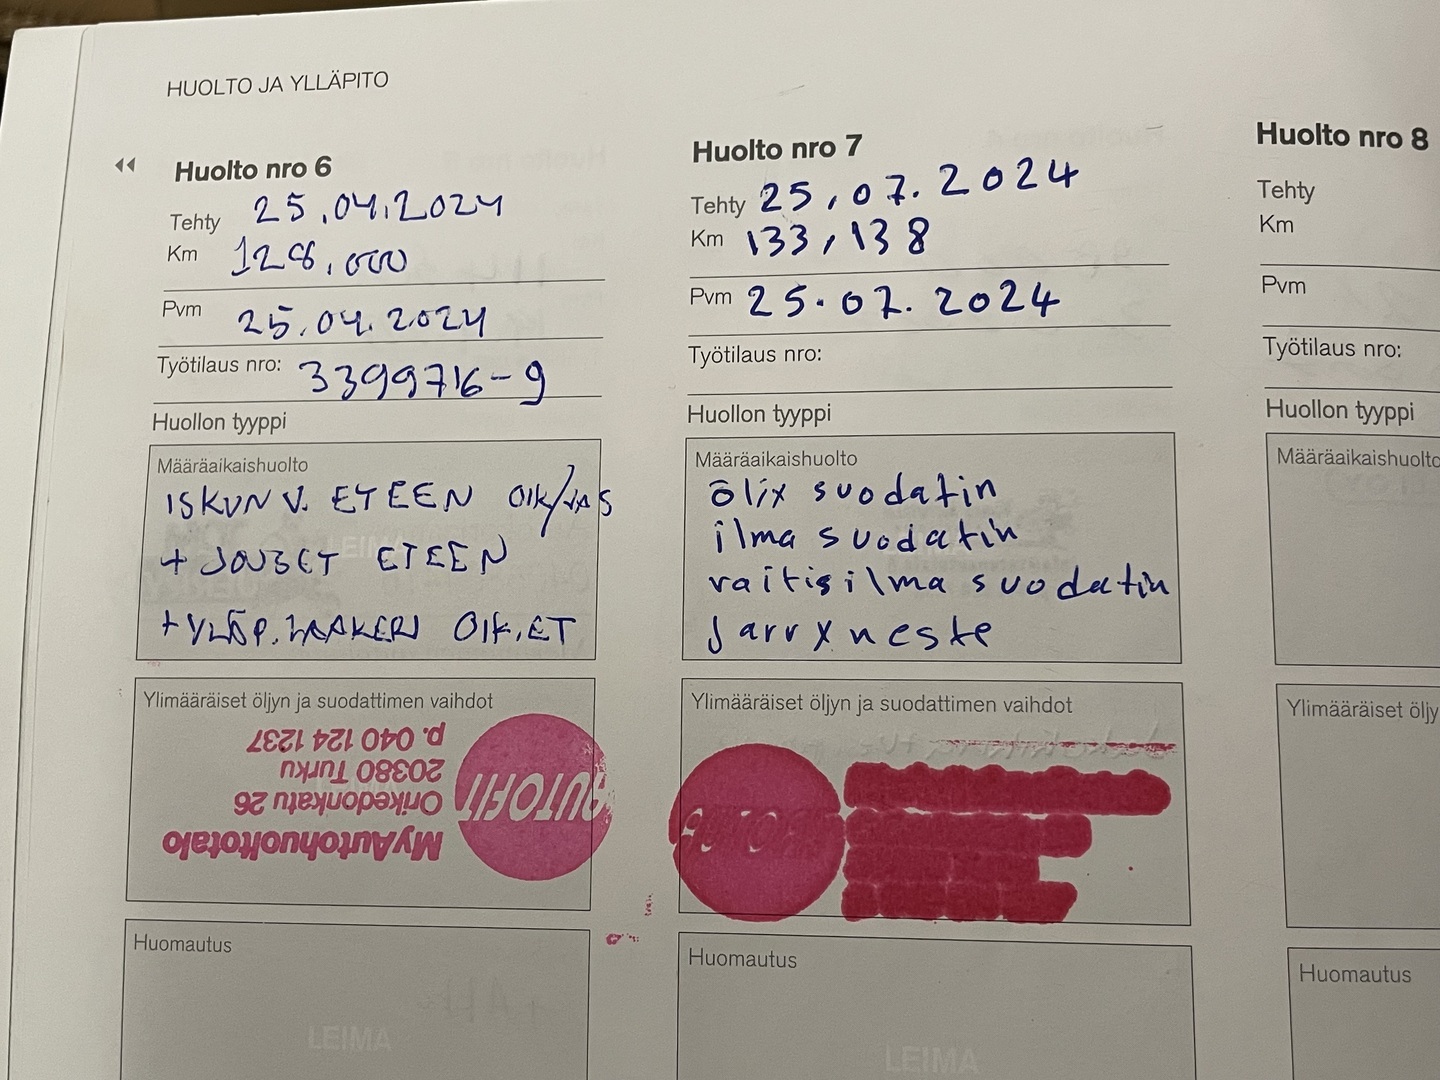 HUOLTO JA YLLÄPITO
Huolto nro 6
Tehty 25.04.2024
Km 128.000
Pvm 25.04.2024
Työtilaus nro: 3399716-9
Huollon tyyppi
Määräaikaishuolto
ISKUN V. ETEEN OIK/VAS
+ JOUSET ETEEN
+ YLÄP. LAAKERI OIK.ET
Ylimääräiset öljyn ja suodattimen vaihdot
AUTOFIT
MyAutohuoltotalo
Orikedonkatu 26
20380 Turku
p. 040 124 1237
Huomautus
LEIMA
Huolto nro 7
Tehty 25,07.2024
Km 133,138
Pvm 25.07.2024
Työtilaus nro:
Huollon tyyppi
Määräaikaishuolto
ölix suodatin
ilma suodatin
raitisilma suodatin
Jarrxneste
Ylimääräiset öljyn ja suodattimen vaihdot
Huomautus
LEIMA
Huolto nro 8
Tehty
Km
Pvm
Työtilaus nro:
Huollon tyyppi
Määräaikaishuolto
Ylimääräiset öljy
Huomautus